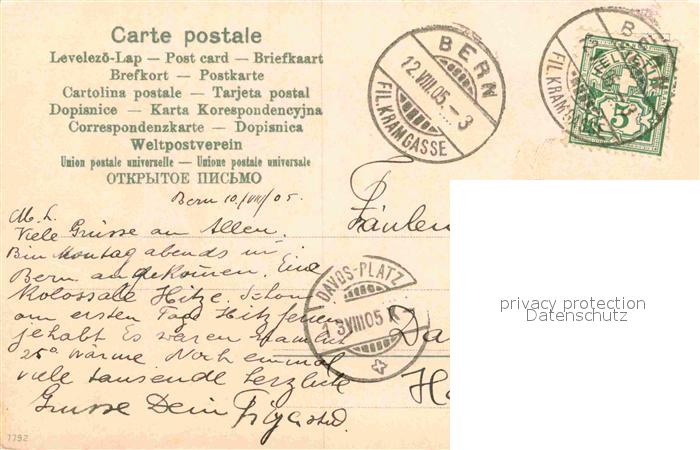 Carte postale
Levelező-Lap — Post card — Briefkaart
Brefkort — Postkarte
Cartolina postale — Tarjeta postal
Dopisnice — Karta Korespondencyjna
Correspondenzkarte — Dopisnica
Weltpostverein
Union postale universelle — Unione postale universale
ОТКРЫТОЕ ПИСЬМО
BERN
12.VIII.05.-3
FIL.KRAMGASSE
BERN
FIL.KRAMGASSE
HELVETIA
5
Bern 10./VIII/05.
M. L.
Viele Grüsse an Allen.
Bin Montag abends in
Bern angekommen. Eine
kolossale Hitze. Schon
am ersten Tag Hitzferien
gehabt Es waren nämlich
25° wärme Noch einmal
viele tausende herzliche
Grüsse Dein
Fräulein
DAVOS-PLATZ
13.VIII.05
Da
privacy protection
Datenschutz
7792